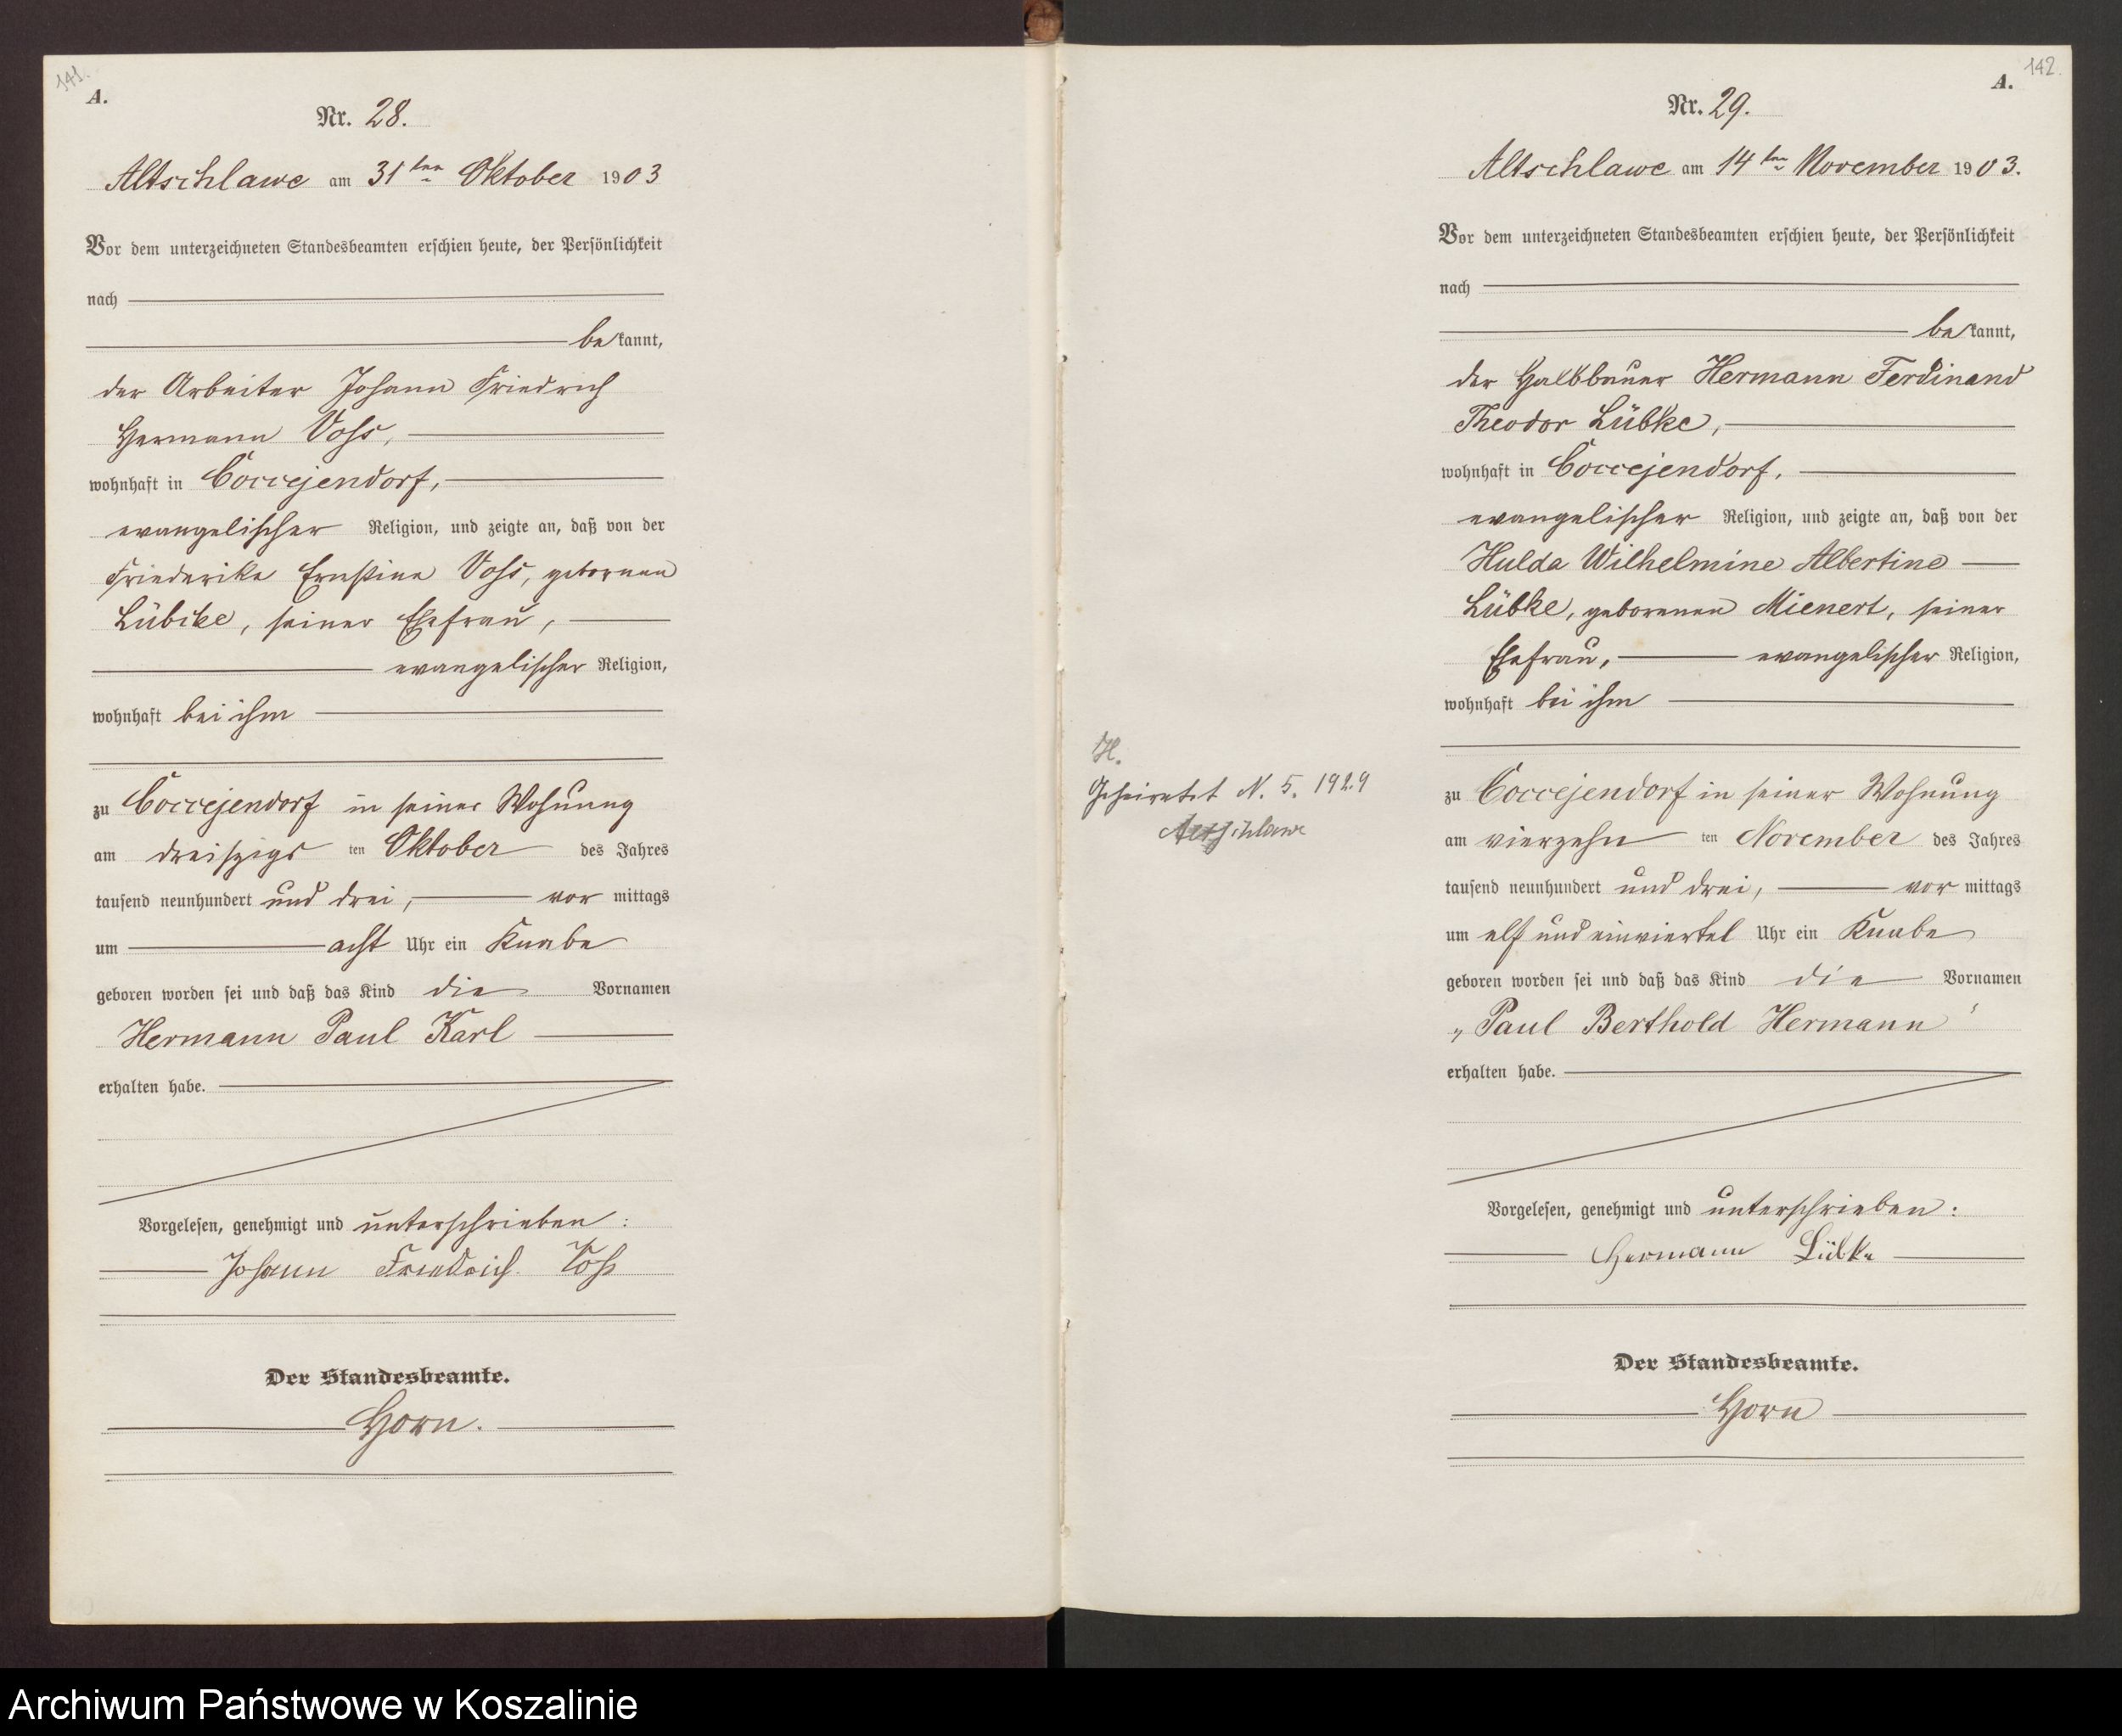 141.
A.
Nr. 28.
Altschlawe am 31ten Oktober 1903
Vor dem unterzeichneten Standesbeamten erschien heute, der Persönlichkeit
nach
bekannt,
der Arbeiter Johann Friedrich
Hermann Voss,
wohnhaft in Coccejendorf,
evangelischer Religion, und zeigte an, daß von der
Friederike Ernstine Voss, geborenen
Lübcke, seiner Ehefrau,
evangelischer Religion,
wohnhaft bei ihm
zu Coccejendorf in seiner Wohnung
am dreiszigs ten Oktober des Jahres
tausend neunhundert und drei, vor mittags
um acht Uhr ein Knabe
geboren worden sei und daß das Kind die Vornamen
Hermann Paul Karl
erhalten habe.
Vorgelesen, genehmigt und unterschrieben:
Johann Friedrich Voss
Der Standesbeamte.
Horn.
142.
A.
Nr. 29.
Altschlawe am 14ten November 1903.
Vor dem unterzeichneten Standesbeamten erschien heute, der Persönlichkeit
nach
bekannt,
der Halbbauer Hermann Ferdinand
Theodor Lübke,
wohnhaft in Coccejendorf,
evangelischer Religion, und zeigte an, daß von der
Hulda Wilhelmine Albertine
Lübke, geborenen Mienert, seiner
Ehefrau, evangelischer Religion,
wohnhaft bei ihm
zu Coccejendorf in seiner Wohnung
am vierzehn ten November des Jahres
tausend neunhundert und drei, vor mittags
um elf und einviertel Uhr ein Knabe
geboren worden sei und daß das Kind die Vornamen
„Paul Berthold Hermann"
erhalten habe.
Vorgelesen, genehmigt und unterschrieben:
Hermann Lübke
Der Standesbeamte.
Horn
H.
Geheiratet N. 5. 1929
Altschlawe
Archiwum Państwowe w Koszalinie